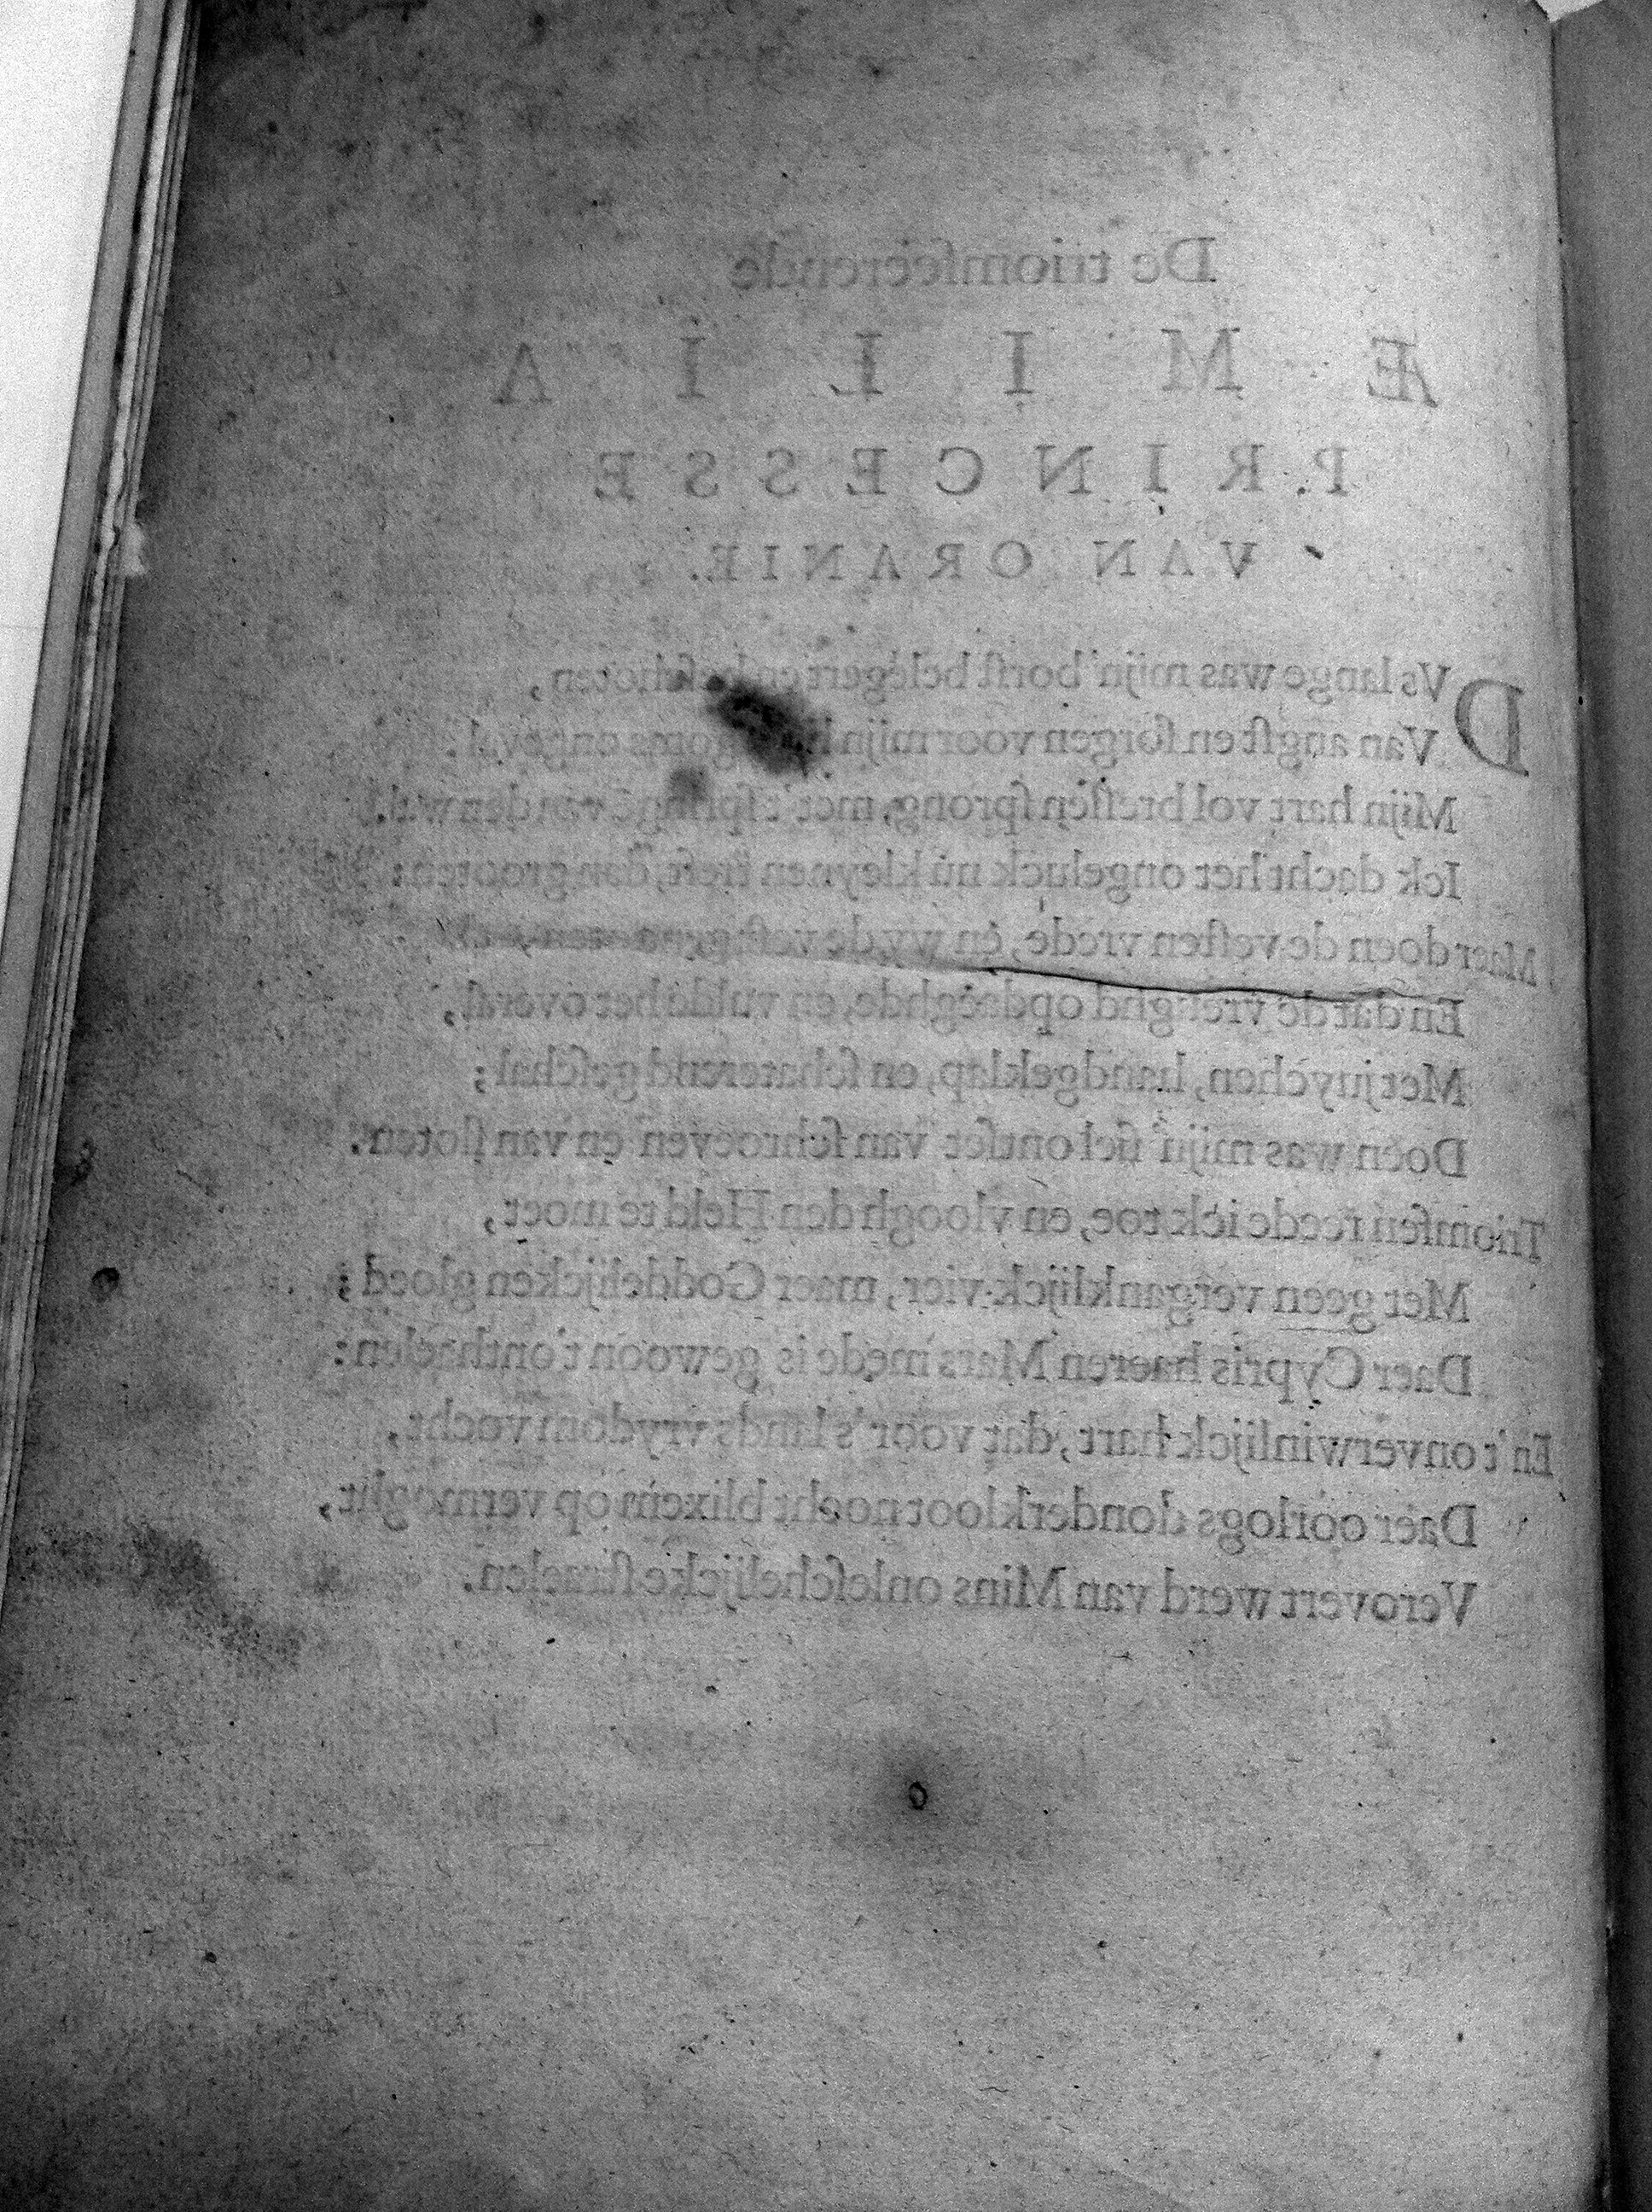 De triomfeerende
ÆMILIA
PRINCESSE
VAN ORANIE.
DVs lange was mijn' borst belegert en beschoten,
Van angst en sorgen voor mijn ongeval.
Mijn hart vol bressen sprong, met 't springen van den wal.
Ick dacht het ongeluck nu kleynen treft, dan grooten:
Maer doen de vesten vrede, en wyde vest
En dat de vreughd opdaeghde, en vulde het overal,
Met juychen, handgeklap, en schaterend geschal;
Doen was mijn' siel ontset van schroeven en van sloten.
Triomfen reede ick toe, en vloogh den Held te moet,
Met geen verganklijck vier, maer Goddelijcken gloed;
Daer Cypris haeren Mars mede is gewoon t'onthaelen:
En 't onverwinlijck hart, dat voor 's lands vrydom vocht,
Daer oorlogs donderkloot noch blixem op vermoght,
Verovert werd van Mins onleschelijcke straelen.